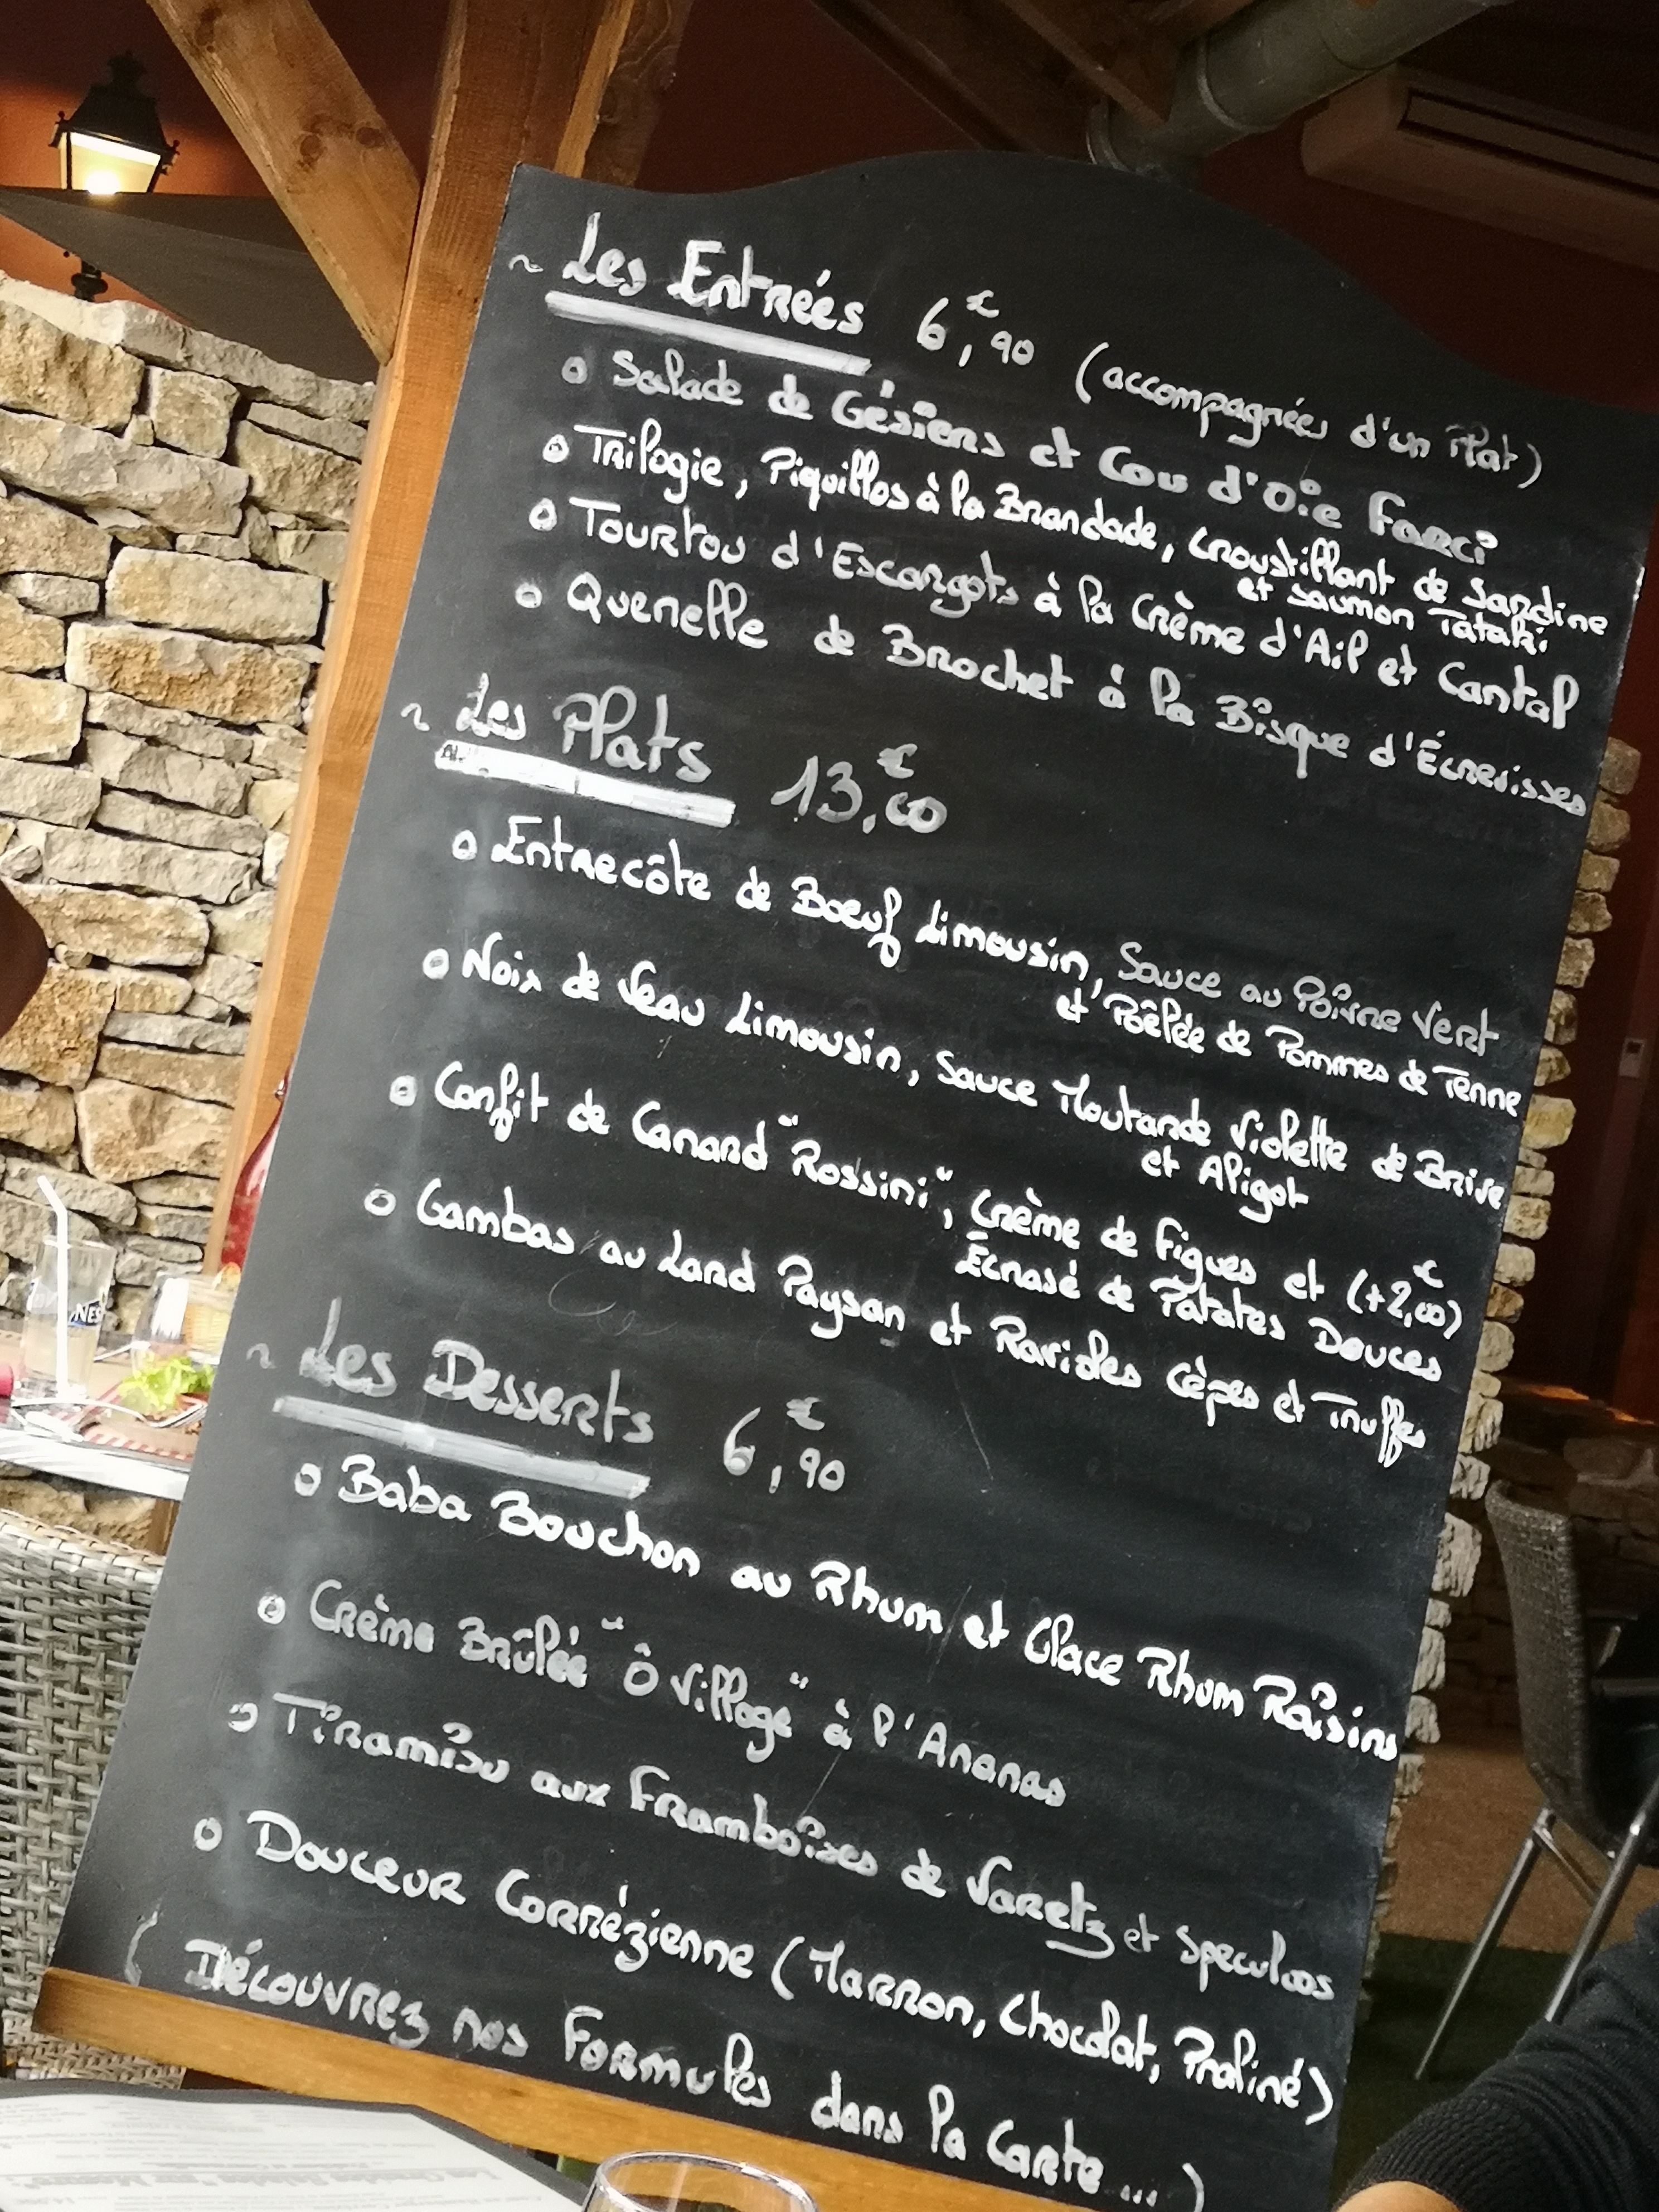 ~ Les Entrées 6,€90 (accompagnées d'un Plat)
o Salade de Gésiers et Cou d'oie Farci
o Trilogie, Piquillos à la Brandade, Croustillant de Sardine
et Saumon Tataki
o Tourtou d'Escargots à la Crème d'Ail et Cantal
o Quenelle de Brochet à la Bisque d'Écrevisses
~ Les Plats 13,€00
o Entrecôte de Boeuf Limousin, Sauce au Poivre Vert
et Poêlée de Pommes de Terre
o Noix de Veau Limousin, Sauce Moutarde Violette de Brive
et Aligot
o Confit de Canard "Rossini", Crème de Figues et (+2,€00)
Écrasé de Patates Douces
o Gambas au Lard Paysan et Ravioles Cèpes et Truffes
~ Les Desserts 6,€90
o Baba Bouchon au Rhum et Glace Rhum Raisins
o Crème Brûlée "Ô Village" à l'Ananas
o Tiramisu aux Framboises de Varetz et Speculoos
o Douceur Corrézienne (Marron, Chocolat, Praliné)
( Découvrez nos Formules dans la Carte ... )
NES